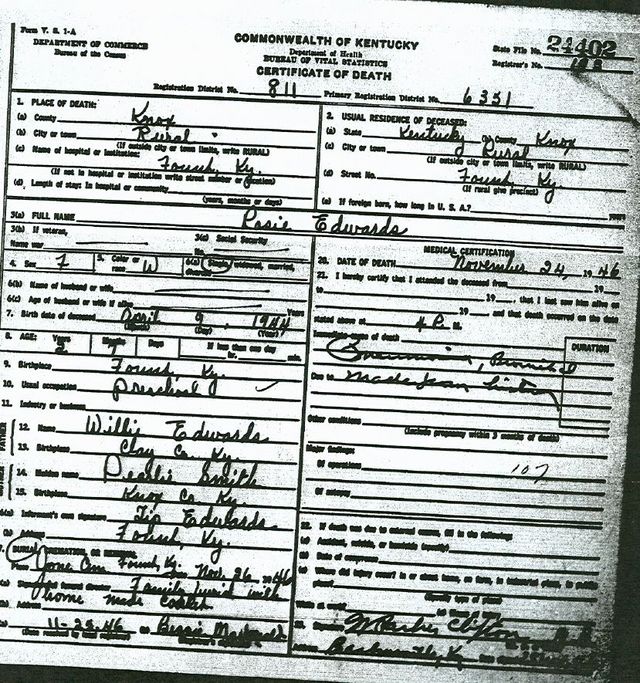 Form V. S. 1-A
DEPARTMENT OF COMMERCE
Bureau of the Census
COMMONWEALTH OF KENTUCKY
Department of Health
BUREAU OF VITAL STATISTICS
CERTIFICATE OF DEATH
State File No. 24402
Registrar's No.
Registration District No. 811 Primary Registration District No. 6351
1. PLACE OF DEATH:
(a) County Knox
(b) City or town Rural
(If outside city or town limits, write RURAL)
(c) Name of hospital or institution:
Fount, Ky.
(If not in hospital or institution write street number or location)
(d) Length of stay: In hospital or community
(years, months or days)
2. USUAL RESIDENCE OF DECEASED:
(a) State Kentucky (b) County Knox
(c) City or town Rural
(If outside city or town limits, write RURAL)
(d) Street No. Fount, Ky.
(If rural give precinct)
(e) If foreign born, how long in U. S. A.? years
3(a) FULL NAME Rosie Edwards
3(b) If veteran,
Name war
3(c) Social Security
No.
4. Sex F 5. Color or race W 6(a) Single, widowed, married,
divorced
6(b) Name of husband or wife
6(c) Age of husband or wife if alive Years
7. Birth date of deceased April 9, 1944
(Month) (Day) (Year)
8. AGE: Years 2 Months 7 Days If less than one day
hr. min.
9. Birthplace Fount, Ky.
10. Usual occupation Preschool
11. Industry or business
12. Name Willie Edwards
13. Birthplace Clay Co. Ky.
14. Maiden name Pearlie Smith
15. Birthplace Knox Co. Ky.
16(a) Informant's own signature Tip Edwards
(b) Address Fount, Ky.
17. BURIAL, CREMATION, OR REMOVAL
Place Fount, Ky. Nov. 26, 1946
Family furied with
home made casket
(b) Address
11-25-46
(Date received by local registrar)
MEDICAL CERTIFICATION
20. DATE OF DEATH November 24, 1946
21. I hereby certify that I attended the deceased from 19
to 19 , that I last saw him alive on
19 , and that death occurred on the date
stated above at 4 P. M.
Immediate cause of death
DURATION
Pneumonia, Bronchial
Due to Made from history
Other conditions
(Include pregnancy within 3 months of death)
Major findings:
Of operations 107
Of autopsy
22. If death was due to external causes, fill in the following:
(a) Accident, suicide, or homicide (specify)
(b) Date of occurrence
(c) Where did injury occur? in or about home, on farm, in industrial place, in public
place?
(Specify type of place)
While at work?
23. Signature
Address Barbourville, Ky.